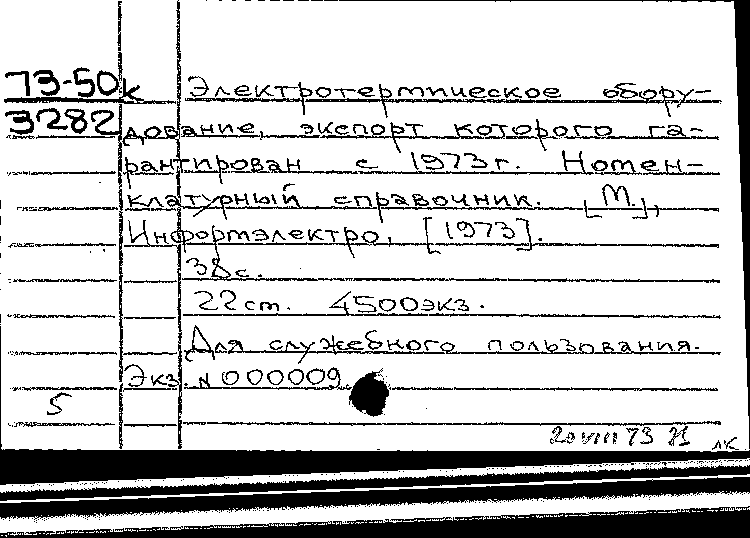 73-50к Электротермическое обору-
3282 дование, экспорт которого га-
рантирован с 1973г. Номен-
клатурный справочник. [М.],
Информэлектро, [1973].
38с.
22см. 4500экз.
Для служебного пользования.
Экз. N 000009.
5
20 VIII 73
лк